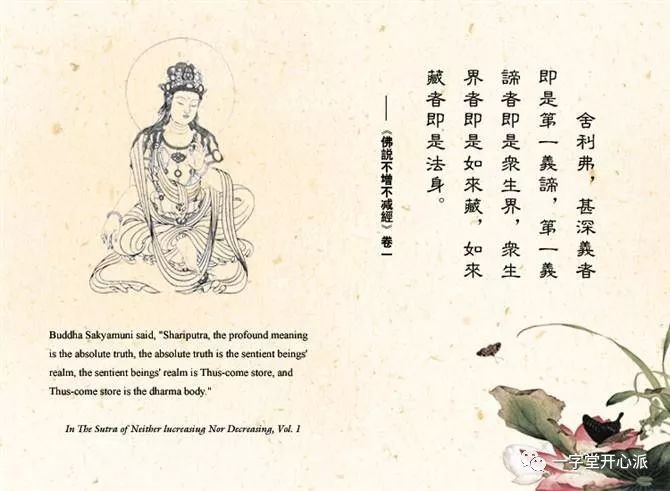 舍利弗，甚深義者
即是第一義諦，第一義
諦者即是衆生界，衆生
界者即是如來藏，如來
藏者即是法身。
——《佛説不增不减經》卷一
Buddha Sakyamuni said, "Shariputra, the profound meaning
is the absolute truth, the absolute truth is the sentient beings'
realm, the sentient beings' realm is Thus-come store, and
Thus-come store is the dharma body."
In The Sutra of Neither Iucreasiug Nor Decreasing, Vol. 1
一字堂开心派